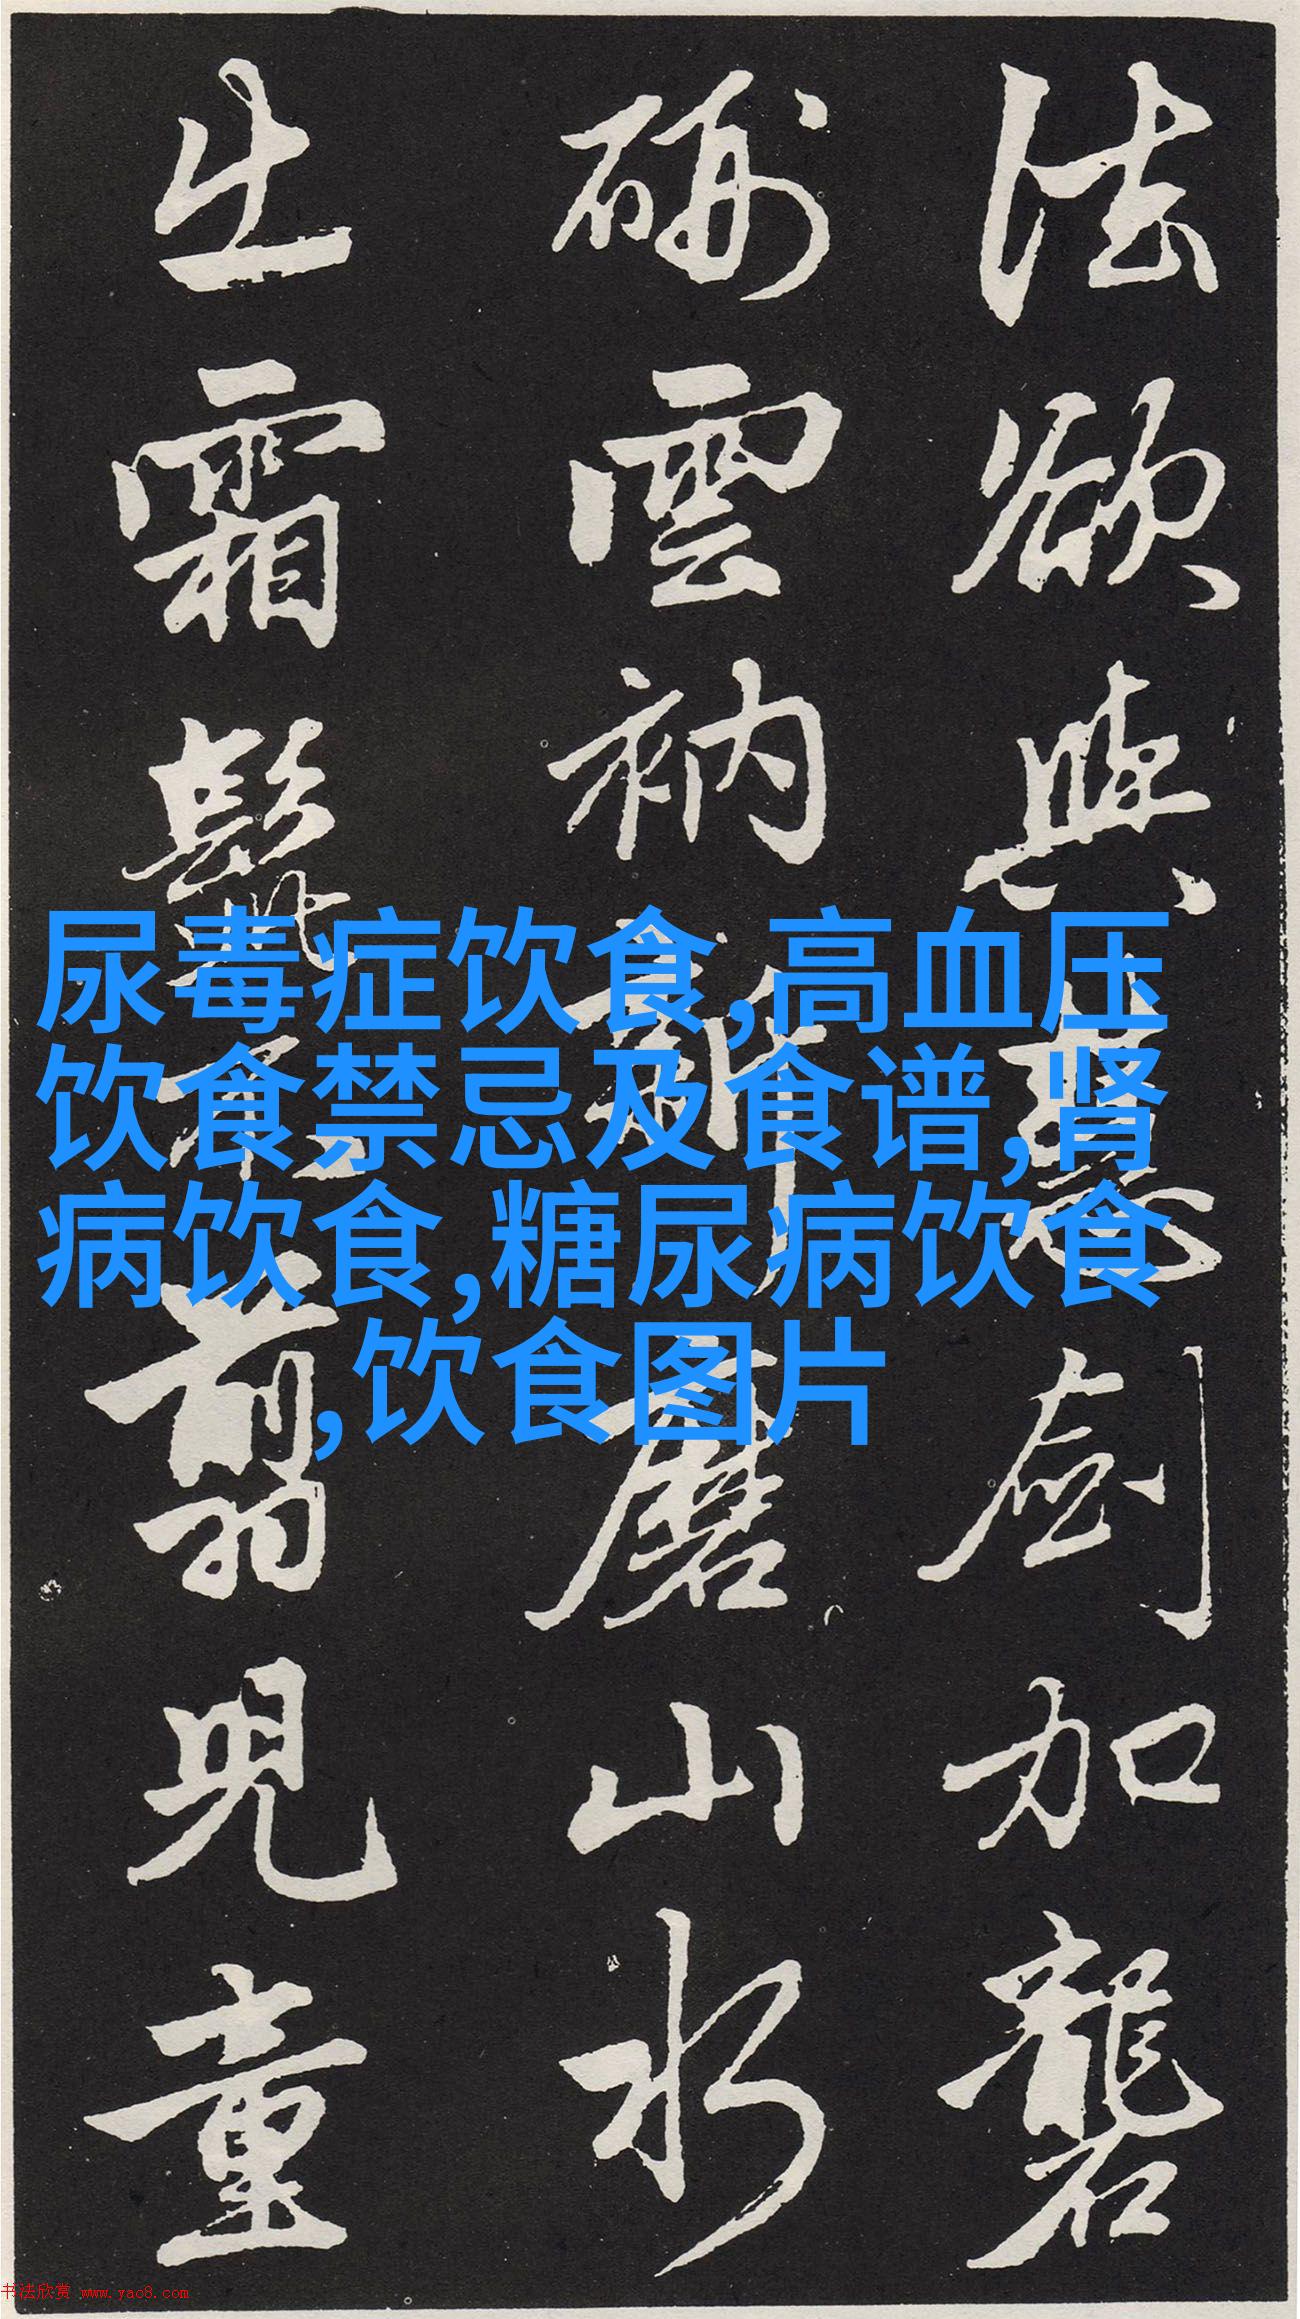 法欲與慧劍加礱
硎雲衲新磨山水
出霜髭不剪兒童
尿毒症饮食,高血压
饮食禁忌及食谱,肾
病饮食,糖尿病饮食
,饮食图片
书法欣赏 www.yac8.com